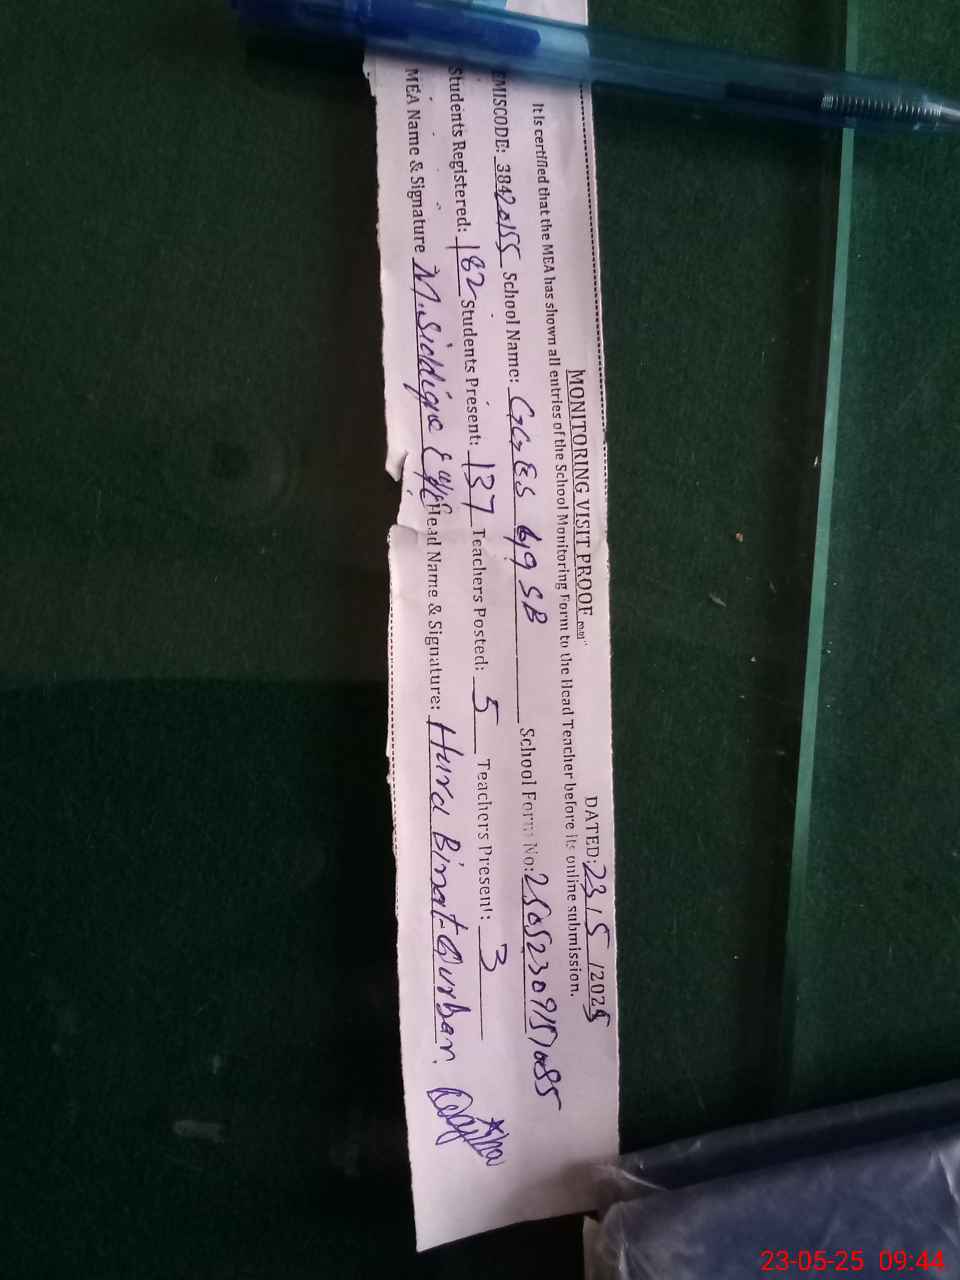 MONITORING VISIT PROOF DATED: 23/5/2025
It is certified that the MEA has shown all entries of the School Monitoring Form to the Head Teacher before its online submission.
EMISCODE: 38420155 School Name: GGES 49 SB School Form No: 2505230915085
Students Registered: 182 Students Present: 137 Teachers Posted: 5 Teachers Present: 3
MEA Name & Signature M. Siddique Head Name & Signature: Hura Binat-Qurban.
23-05-25 09:44